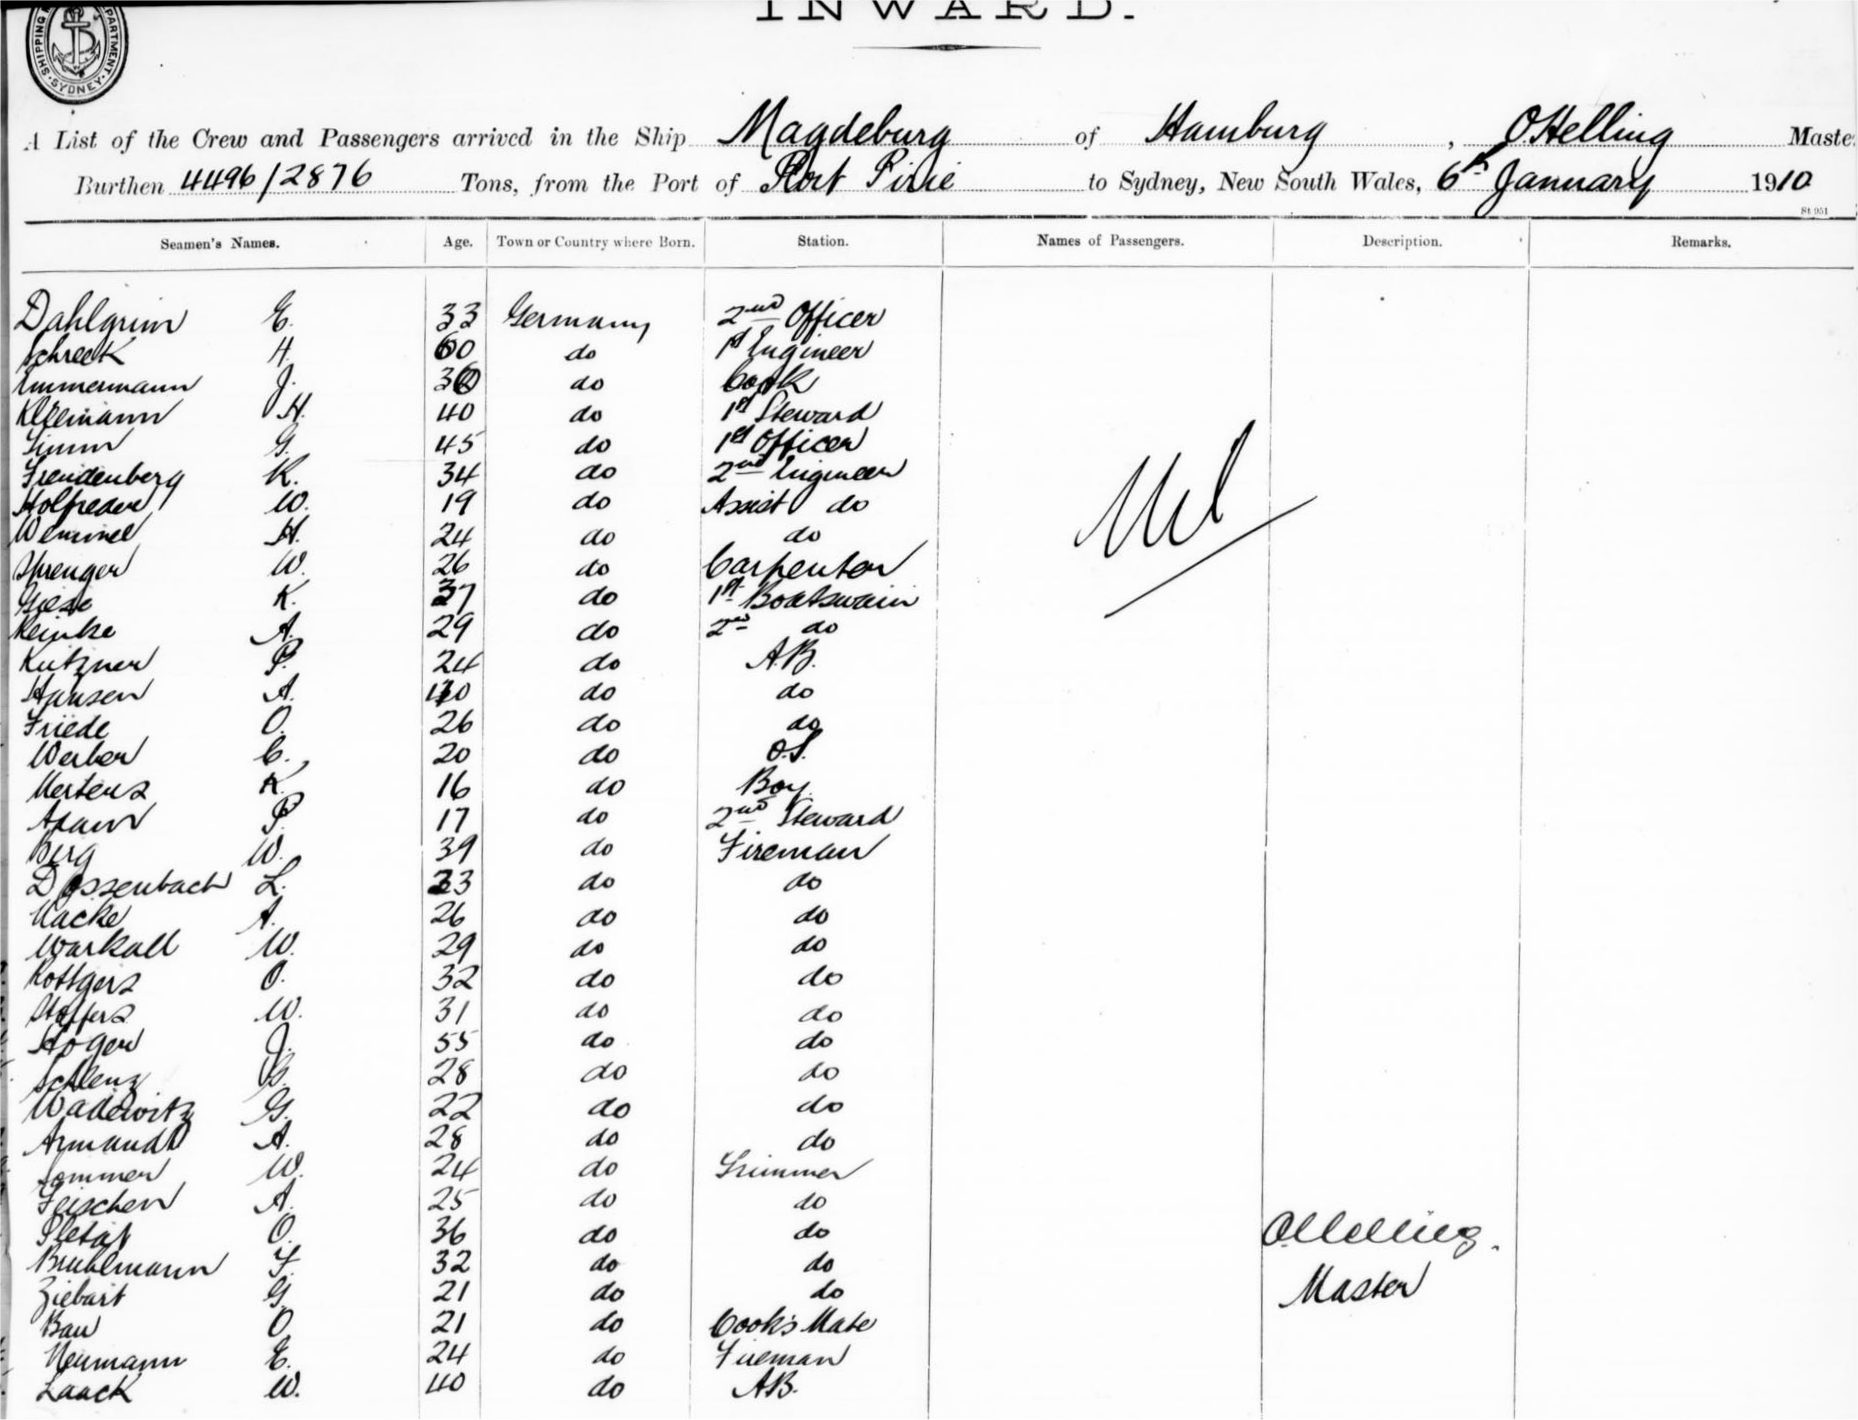 INWARD.
SHIPPING DEPARTMENT SYDNEY
A List of the Crew and Passengers arrived in the Ship Magdeburg of Hamburg, O. Helling Maste
Burthen 4496/2876 Tons, from the Port of Port Pirie to Sydney, New South Wales, 6th January 1910
St 951
Seamen's Names. Age. Town or Country where Born. Station. Names of Passengers. Description. Remarks.
Dahlgrim E. 33 Germany 2nd Officer
Schreck H. 60 do 1st Engineer
Emmermann J. 30 do Cook
Kleemann H. 40 do 1st Steward
Timm G. 45 do 1st Officer
Freudenberg K. 34 do 2nd Engineer
Holfreder W. 19 do Assist do
Wemmel H. 24 do do
Sprenger W. 26 do Carpenter
Giese K. 37 do 1st Boatswain
Reinke A. 29 do 2nd do
Kutzner P. 24 do A.B.
Hansen A. do do
Friede O. 26 do do
Werber C. 20 do O.S.
Mertens K. 16 do Boy
Adam P. 17 do 2nd Steward
Berg W. 39 do Fireman
Dossenbach L. 33 do do
Macke A. 26 do do
Warkall W. 29 do do
Rottgers O. 32 do do
Steffers W. 31 do do
Hoger J. 55 do do
Schlenz G. 28 do do
Wadewitz G. 22 do do
Armandt A. 28 do do
Sommer W. 24 do Trimmer
Feischen A. 25 do do
Pletat O. 36 do do
Bruhlmann F. 32 do do
Ziebart G 21 do do
Bau O 21 do Cook's Mate
Neumann E. 24 do Fireman
Laack W. 40 do AB.
Nil
O. Helling.
Master